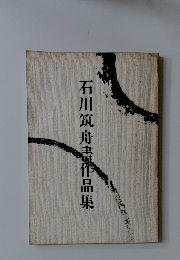 石川筑舟書作品集